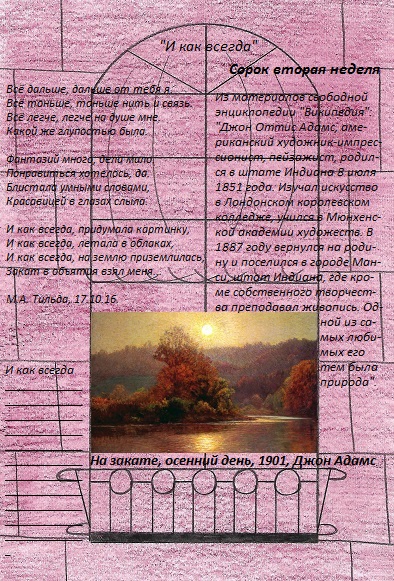 "И как всегда"
Сорок вторая неделя
Всё дальше, дальше от тебя я.
Всё тоньше, тоньше нить и связь.
Всё легче, легче на душе мне,
Какой же глупостью была.
Фантазий много, дела мало,
Понравиться хотелось, да,
Блистала умными словами,
Красавицей в глазах слыла.
И как всегда, придумала картинку,
И как всегда, летала в облаках,
И как всегда, на землю приземлилась,
Закат в объятия взял меня...
М.А. Тильда, 17.10.16.
И как всегда
Из материалов свободной
энциклопедии "Википедия":
"Джон Оттис Адамс, аме-
риканский художник-импрес-
сионист, пейзажист, родил-
ся в штате Индиана 8 июля
1851 года. Изучал искусство
в Лондонском королевском
колледже, учился в Мюнхенс-
кой академии художеств. В
1887 году вернулся на роди-
ну и поселился в городе Ман-
си, штат Индиана, где кро-
ме собственного творчест-
ва преподавал живопись. Од-
ной из са-
мых люби-
мых его
тем была
природа".
На закате, осенний день, 1901, Джон Адамс